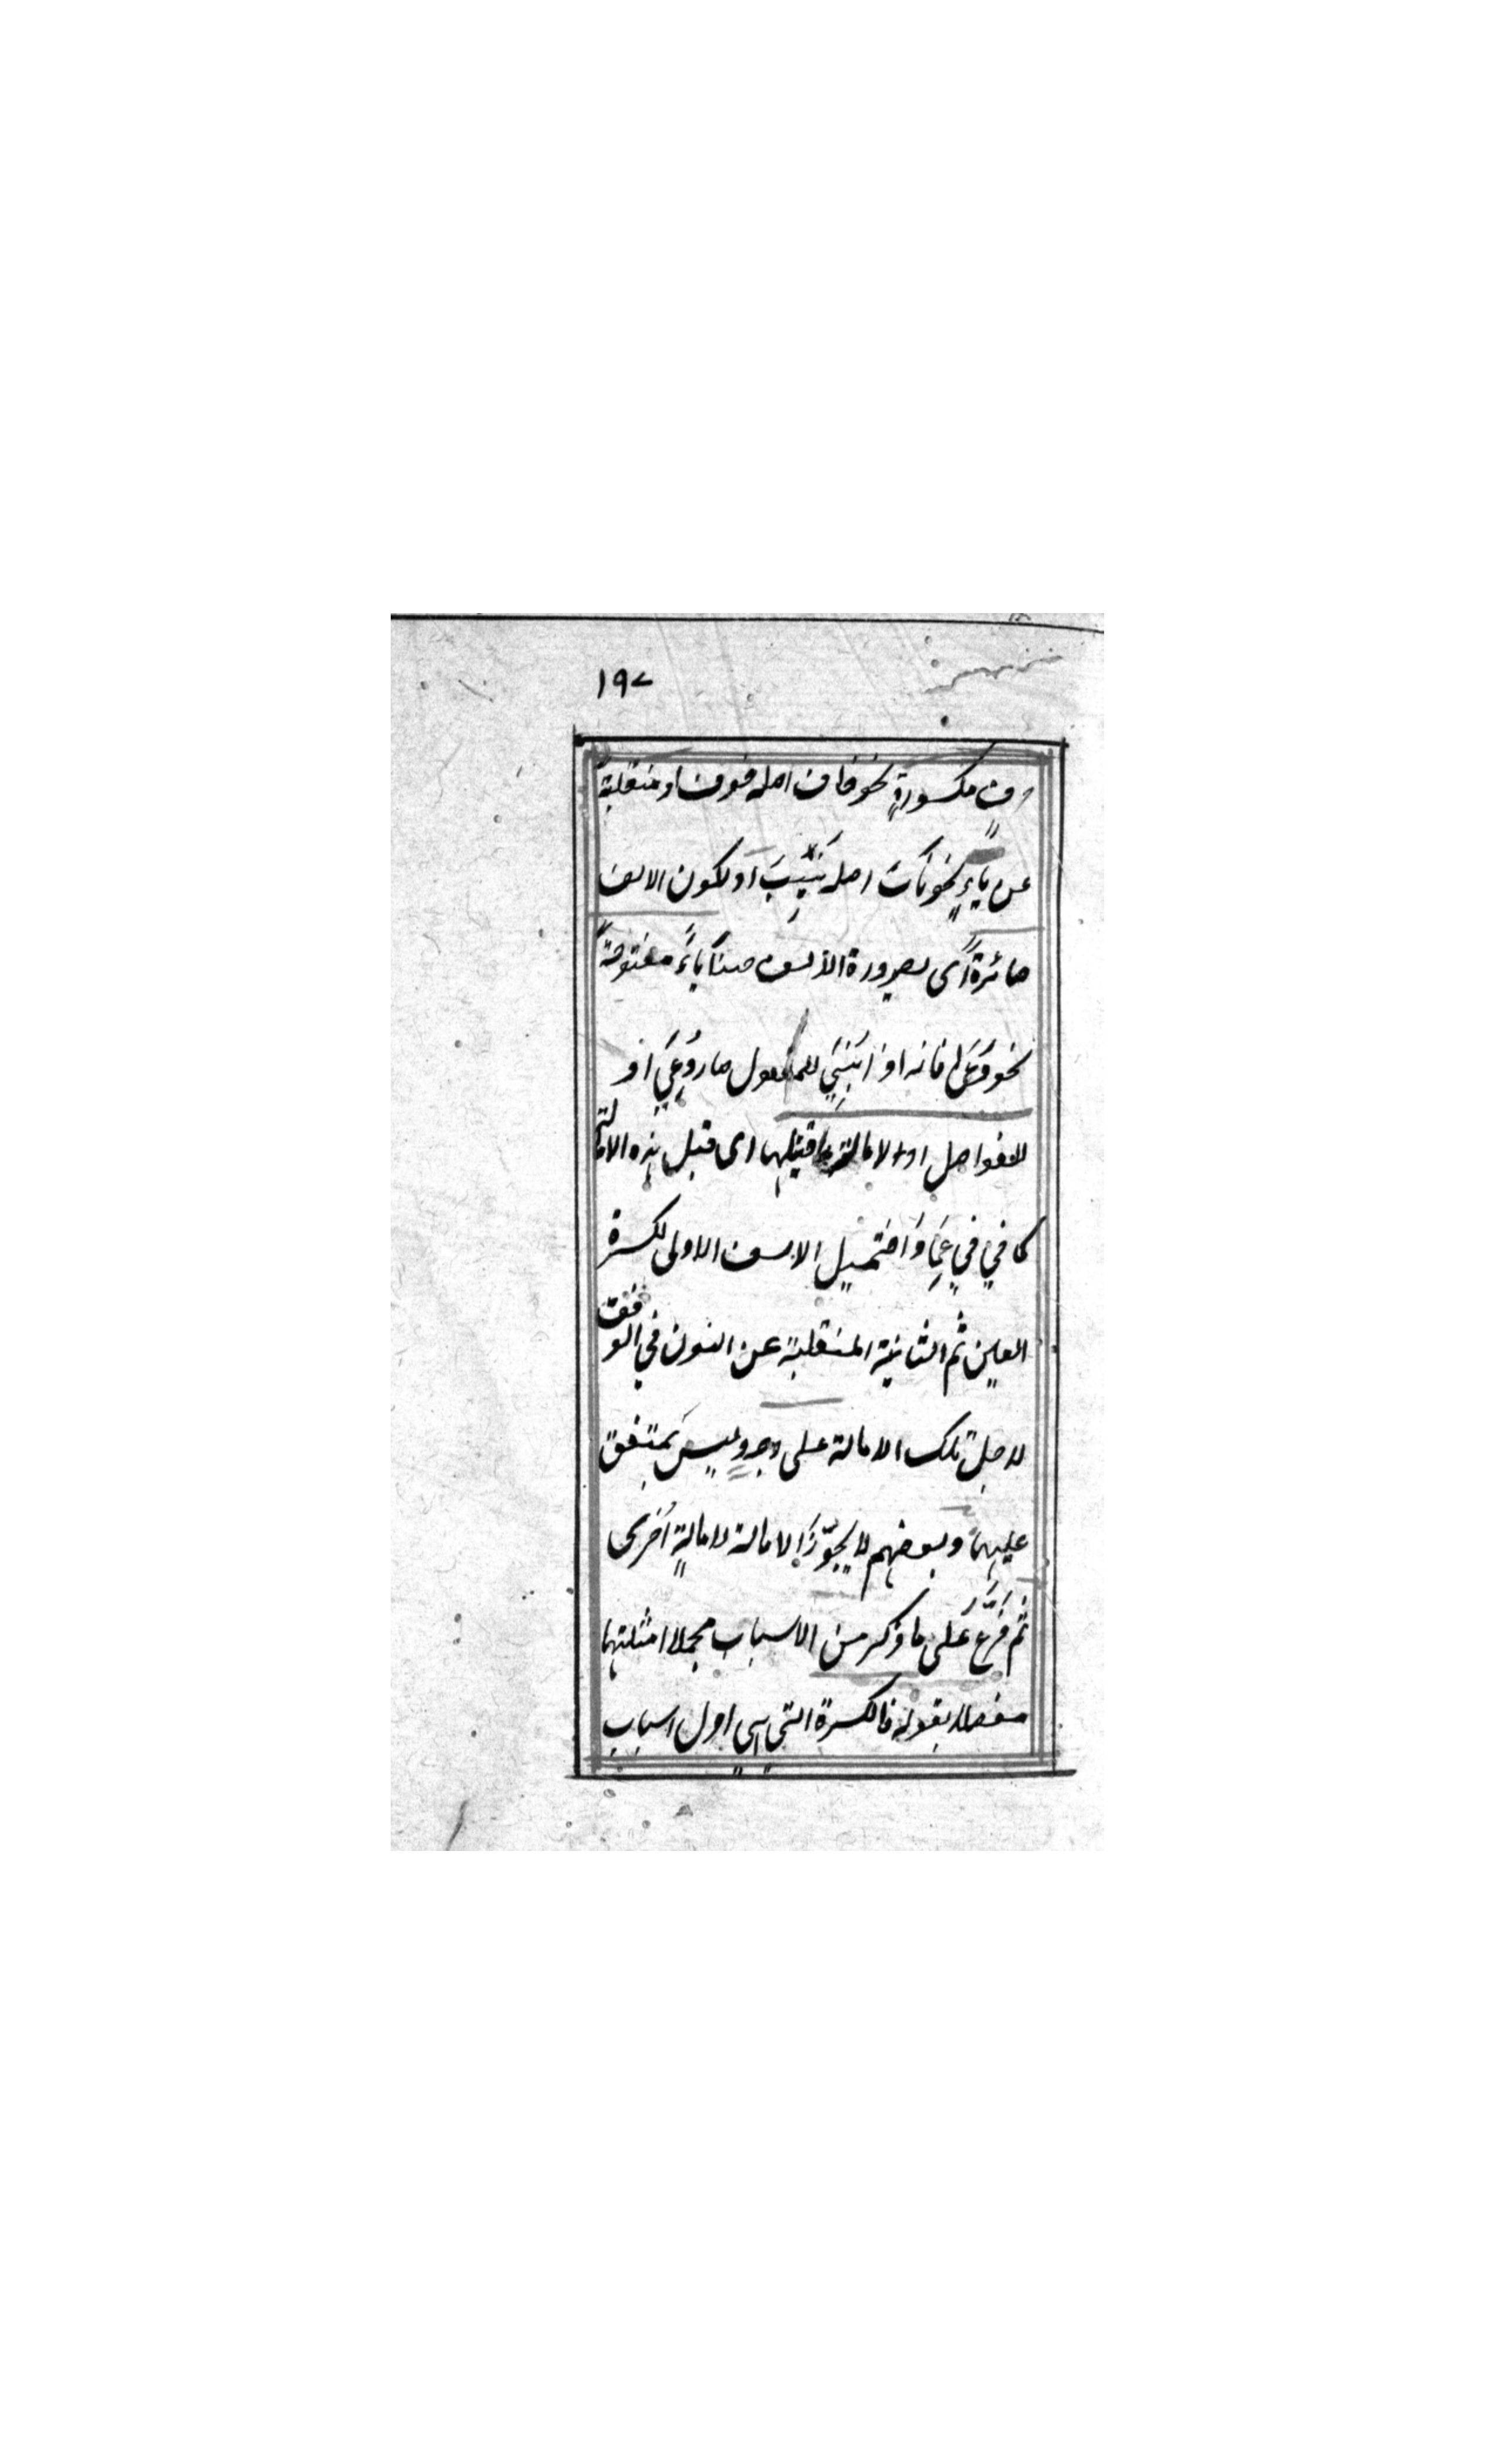 ١٩٧
وٍ مكسورةٍ نحو خاف اصله خوف او منقلبةً
عن ياءٍ نحو ناب اصله نَيَبَ او لكون الالف
صائرةً اى لصيرورة الالف حينًا ياءً مفتوحةً
نحو دعا فانه اذا بُنِيَ للمفعول صار دُعِيَ او
للفواصل او لامالةٍ قبلها اى قبل هذه الامالة
كما في عمادا فتميل الالف الاولى لكسرة
العين ثم الثانية المنقلبة عن النون في الوقف
لاجل تلك الامالة على وجهٍ وليس بمتفق
عليها وبعضهم لا يجوّز الامالة لامالةٍ اُخرى
ثم فَرَّعَ عَلى ما ذكر من الاسباب مجملا امثلتها
مفصلا بقوله فالكسرة التي هي اول اسباب